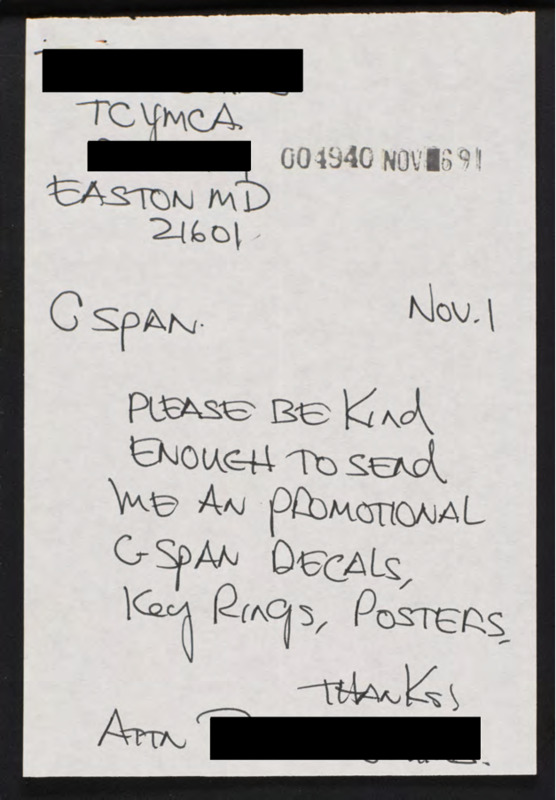 TCYMCA
004940 NOV 691
EASTON MD
21601
CSPAN.
Nov. 1
PLEASE BE Kind
ENOUGH TO SEND
ME AN PROMOTIONAL
C-SPAN DECALS,
Key Rings, POSTERS,
THANKS!
ATTN